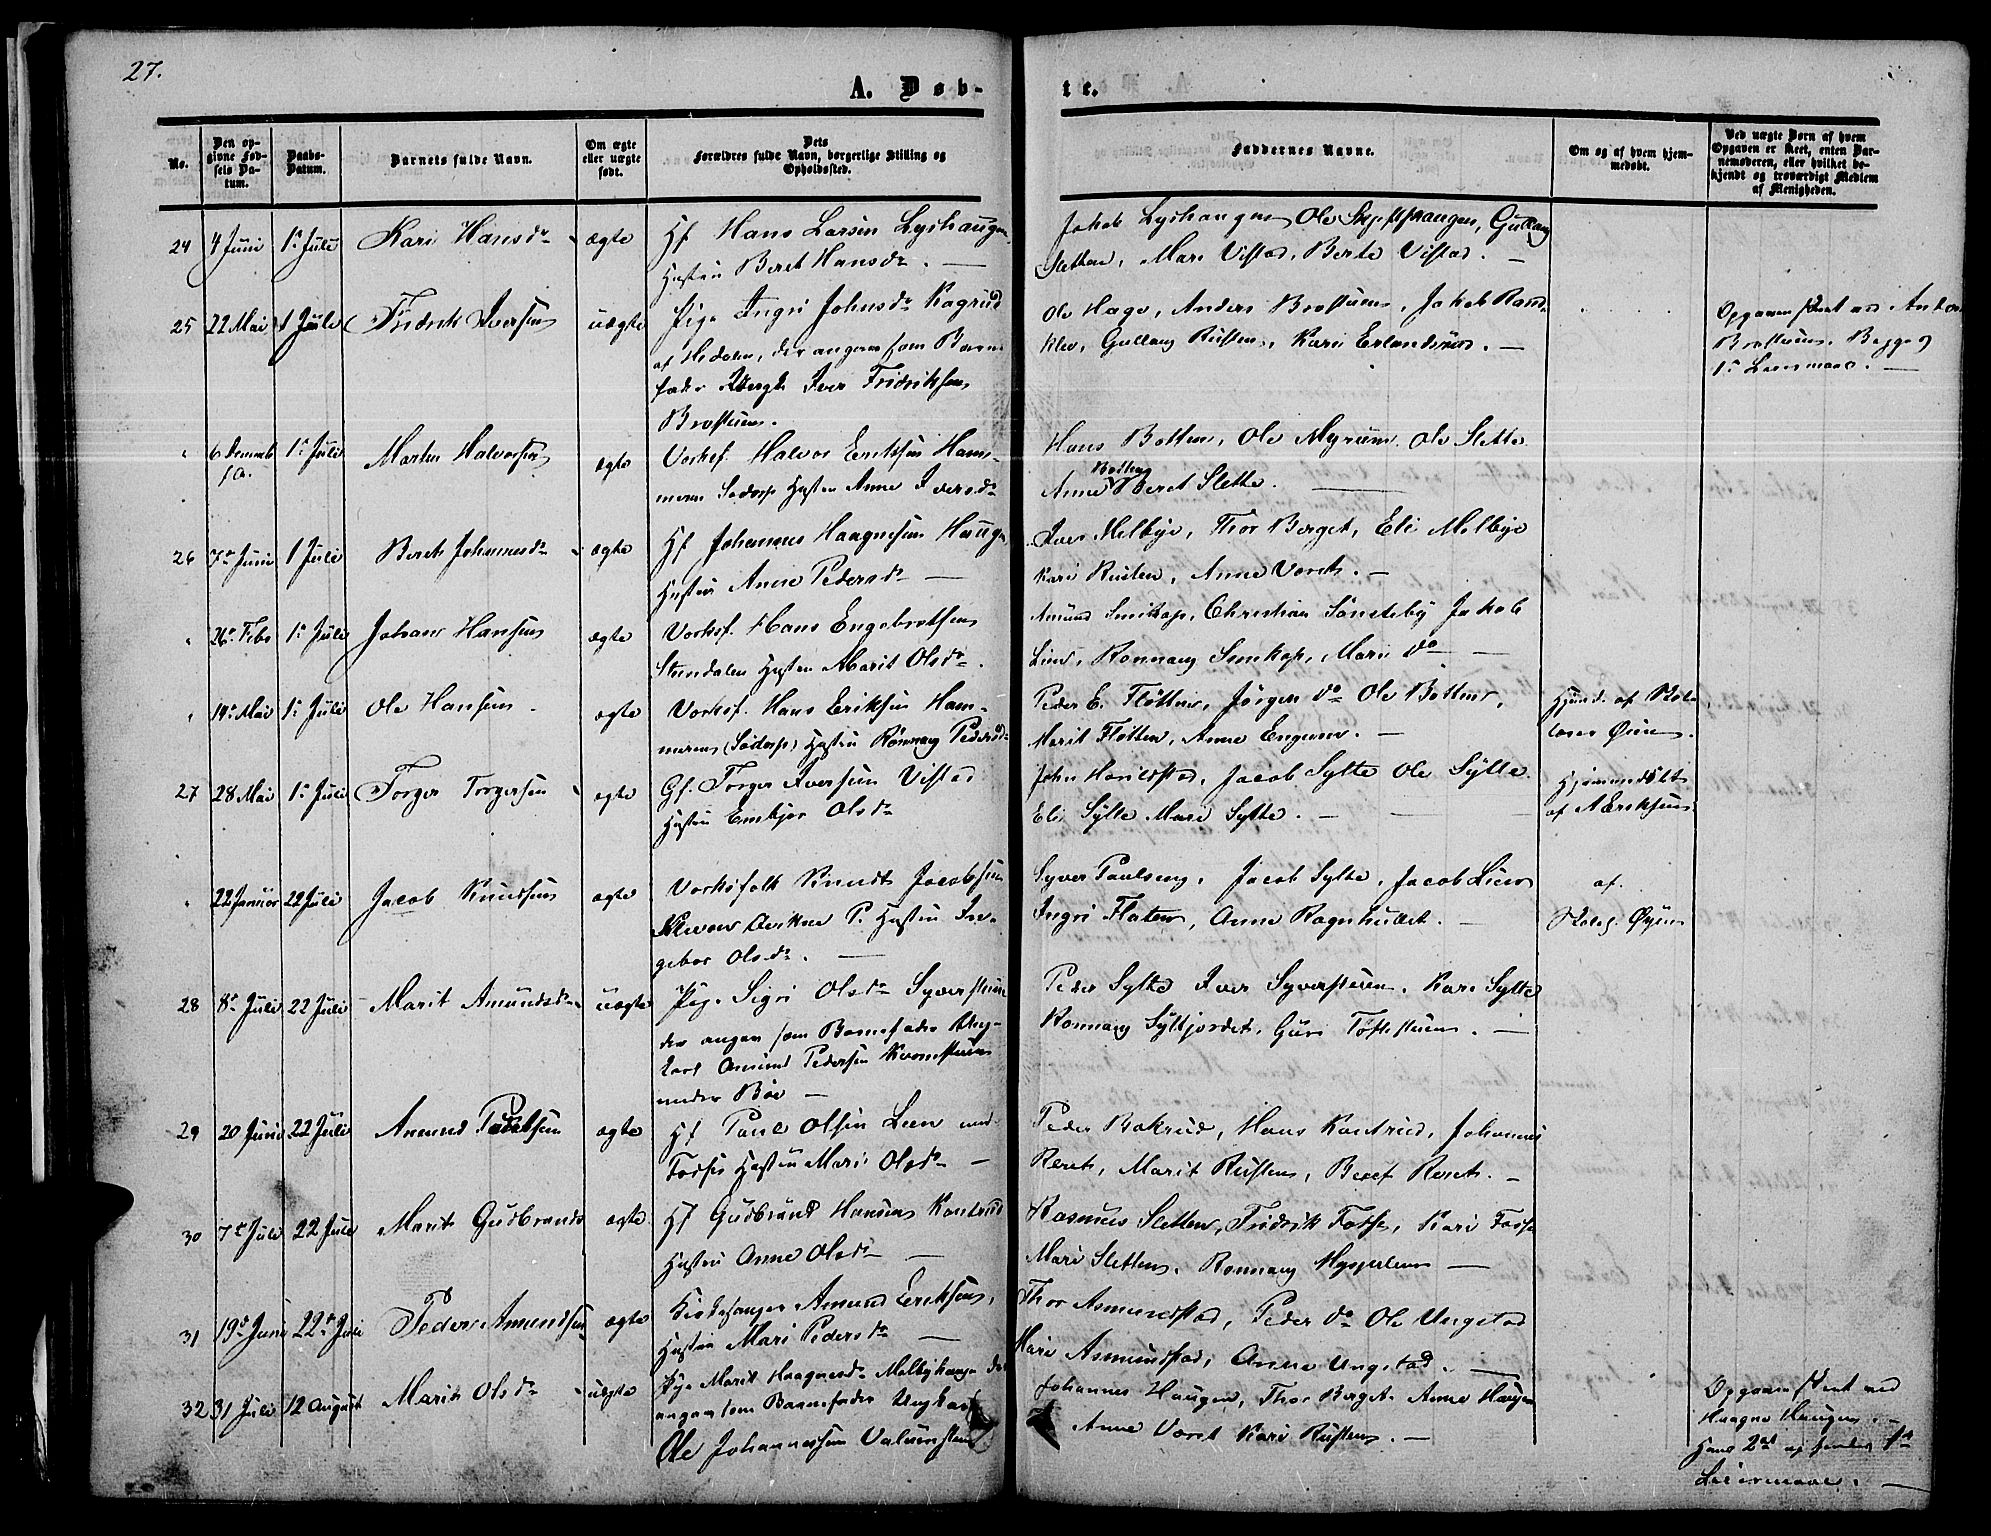 27.
A. Døb-
te.
No.
Den op-
givne Fød-
sels Da-
tum.
Daabs-
Datum.
Barnets fulde Navn.
Om ægte
eller uægte
født.
Dets
Forældres fulde Navn, borgerlige Stilling og
Opholdssted.
Faddernes Navne.
Om og af hvem hjem-
medøbt.
Ved uægte Børn af hvem
Opgaven er skeet, enten Bar-
nemoderen, eller hvilket be-
kjendt og troværdigt Medlem
af Menigheden.
24 4 Juni 1ste Juli Kari Hansdr ægte Hf Hans Larsen Lyshaugen
Hustru Beret Hansdr. —
Jakob Lyshaugen Ole
Sletten, Mari Vistad, Berte Vistad. —
25 22 Mai 1 Juli Fridrik Iversen uægte Pige Ingri Johnsdr Kagrud
af Hedalen, der angav som Barne
fader Iver Fridriksen
Brostuen.
Ole Hage, Anders Brostuen, Jakob Rand-
klev, Gullaug Rusten, Kari Erlandsøien. —
Opgaven skeet ved
Brostuen. Begges
1ste Leiermaal. —
6 Decemb
f.a. 1ste Juli Morten Halvorsen ægte Halvor Eriksen Ham-
meren Sødorp Hustru Anne Iversdr
Hans Botten, Ole Myrum, Ole Slette
Anne Botten Beret Slette. —
26 7de Juni 1 Juli Beret Johannesdr ægte Hf Johannes Haagensen Haugen
Hustru Anne Pedersdr —
Iver Melbye, Thor Berget, Eli Melbye
Kari Rusten, Anne Voret. —
26de Febr 1ste Juli Johans Hansen ægte Hans Engebretsen
Hustru Marit Olsdr.
Amund Christian Sønsteby Jakob
Lien, Ronnaug Mari do —
14de Mai 1ste Juli Ole Hansen. ægte Hans Eriksen Ham-
meren (Sødorp) Hustru Rønnaug Pedersdr
Peder E. Fløtten, Jørgen do Ole Botten,
Marit Fløtten, Anne Engum. —
Hjemd. af Skole
lærer Øien.
27 28 Mai 1ste Juli Torger Torgersen ægte Gf. Torger Iversen Vistad
Hustru Embjør Olsdr
John Harildstad, Jacob Sylte Ole Sylte
Eli Sylte Mari Sylte. —
Hjemmedøbt
af A Eriksen
22 Januar 22 Juli Jacob Knudsen ægte Knudt Jacobsen
P. Hustru In-
gebor Olsdr. —
Syver Paulseng, Jacob Sylte, Jacob Lien
Ingri Flaten, Anne Ragnhullet. —
af.
Skoleh. Øyen
28 8de Juli 22 Juli Marit Amundsdr uægte Pige Sigri Olsdr Syverstuen
der angav som Barnefader Ung-
karl Amund Pedersen Kvernstuen
under Bøe —
Peder Sylte Iver Syverstuen. Kari Sylte
Ronnaug Syltjordet, Guri Toftestuen. —
29 20 Juni 22 Juli Amund Paulsen ægte Hf Paul Olsen Lien und.
Fosse Hustru Mari Olsdr —
Peder Bakrud, Hans Kontrud, Johannes
Reret, Marit Rusten, Beret Reret. —
30 7de Juli 22 Juli Marit Gudbrands ægte Hf Gudbrand Hansen Kontrud
Hustru Anne Olsdr —
Rasmus Sletten, Fridrik Fosse, Kari Fosse
Mari Sletten. Ronnaug —
31 19de Juni 22de Juli Peder Amundsen ægte Kirkesanger Amund Eriksen,
Hustru Mari Pedersdr —
Thor Asmundstad, Peder do Ole Ungstad
Mari Asmundstad, Anne Ungstad. —
32 31 Juli 12 August Marit Olsdr uægte Pige Marit Haagensdr Melbyhaugen der
angav som Barnefader Ungkarl
Ole Johannessen
Johannes Haugen, Thor Berget. Anne Haugen
Anne Voret Kari Rusten. —
Opgaven skeet ved
Haagen Haugen. —
Hans 2det og hendes 1ste
Leiermaal. —